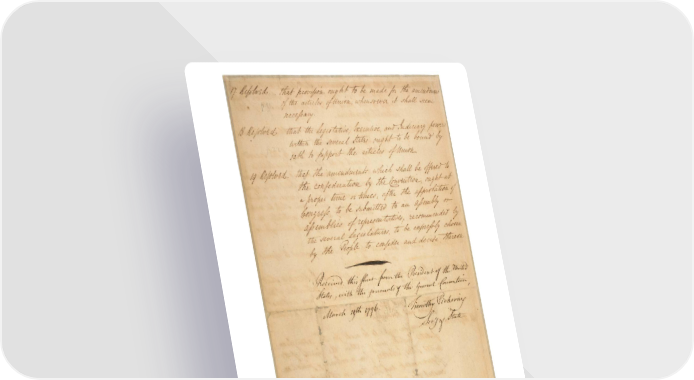 17 Resolved. that provision ought to be made for the amendment
of the articles of Union, whensoever it shall seem
necessary
18 Resolved. that the Legislative, Executive, and Judiciary powers
within the several States ought to be bound by
oath to support the articles of Union.
19 Resolved. that the amendments which shall be offered to
the confederation by the Convention, ought at
a proper time or times, after the approbation of
Congress, to be submitted to an assembly or
assemblies of representatives, recommended by
the several Legislatures, to be expressly chosen
by the People to consider and decide thereon
Received this sheet from the President of the United
States, with the journals of the General Convention,
March 19th 1796. Timothy Pickering
Secy of State